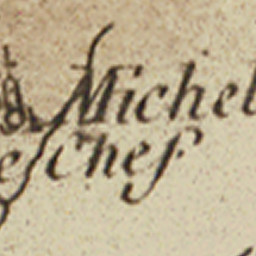 Michel
chef